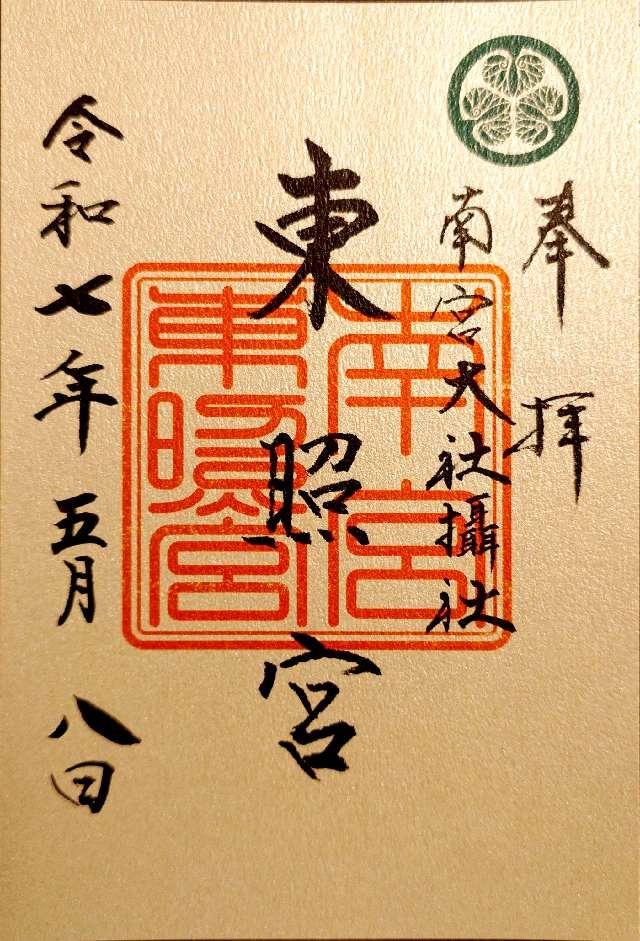 奉拝
南宮大社攝社
東照宮
南宮
東照宮
令和七年五月八日